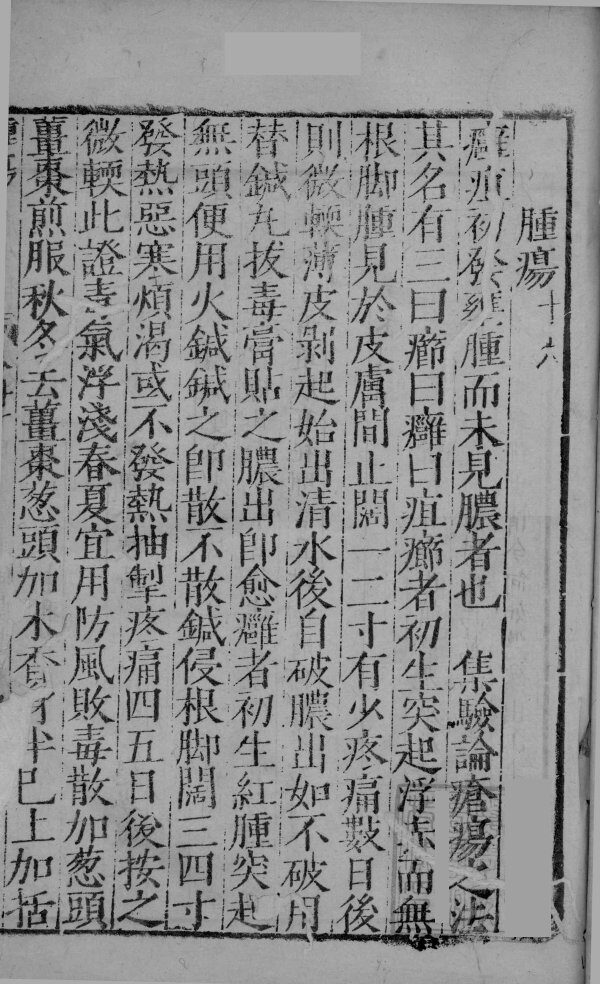 腫瘍十六
癰疽初發壅腫而未見膿者也　集驗論瘡瘍之法
其名有三曰癤曰癰曰疽癤者初生突起浮赤而無
根脚腫見於皮膚間止闊一二寸有少疼痛數日後
則微輭薄皮剥起始出清水後自破膿出如不破用
替鍼丸拔毒膏貼之膿出即愈癰者初生紅腫突起
無頭便用火鍼鍼之即散不散鍼侵根脚闊三四寸
發熱惡寒煩渴或不發熱抽掣疼痛四五日後按之
微輭此證毒氣浮淺春夏宜用防風敗毒散加葱頭
薑棗煎服秋冬去薑棗葱頭加木香半已上加括